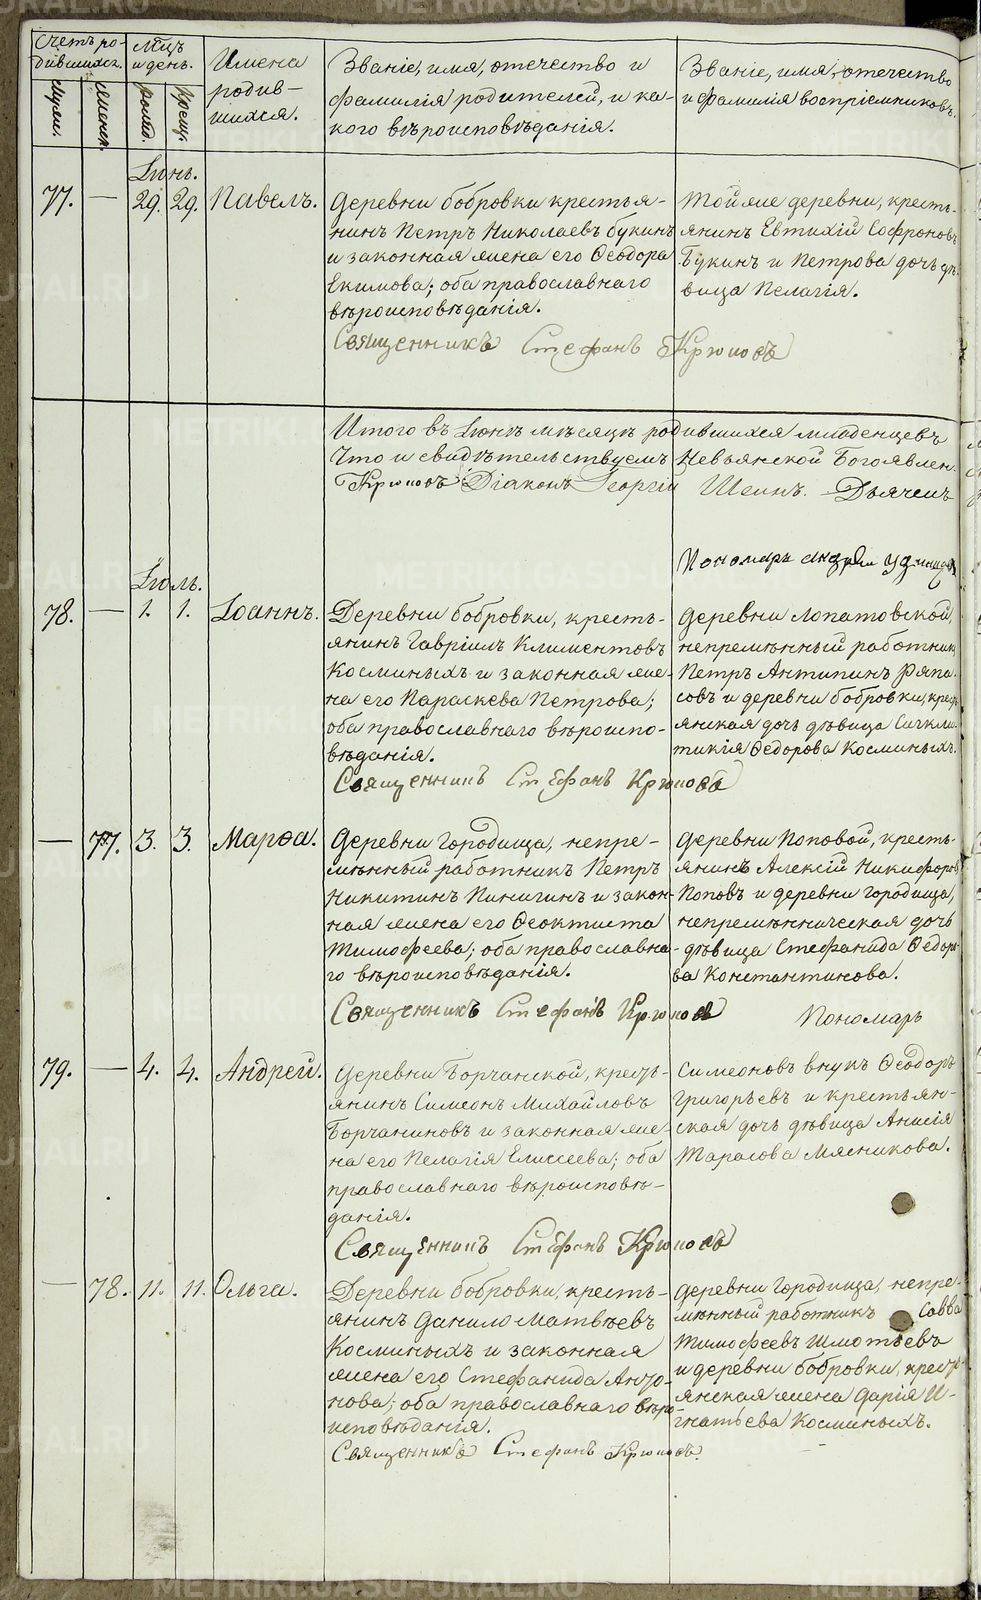 Счетъ ро-
дившихся.
Мѣсц.
и день.
Имена
родив-
шихся.
Званіе, имя, отечество и
фамилія родителей, и ка-
кого вѣроисповѣданія.
Званіе, имя, отечество
и фамилія воспріемниковъ.
Муж.
Женск.
рожд.
крещ.
Іюнь.
77. — 29. 29. Павелъ.
Деревни Бобровки крестья-
нинъ Петръ Николаевъ Букинъ
и законная жена его Ѳеодора
Екимова; оба православнаго
вѣроисповѣданія.
Тойже деревни, кресть-
янинъ Евтихій Софроновъ
Букинъ и Петрова дочь дѣ-
вица Пелагія.
Священникъ Стефанъ Крюковъ
Итого въ Іюнѣ мѣсяцѣ родившихся младенцевъ
Что и свидѣтельствуемъ Невьянской Богоявлен.
Крюковъ Діаконъ Георгій Шеинъ. Дьячекъ
Пономарь Андрей
Іюль.
78. — 1. 1. Іоаннъ.
Деревни Бобровки, кресть-
янинъ Гавріилъ Климентовъ
Косминыхъ и законная же-
на его Параскева Петрова;
оба православнаго вѣроиспо-
вѣданія.
Деревни Лопатовской,
непремѣнный работник
Петръ Антипинъ Ряпа-
совъ и деревни Бобровки, крест
янская дочь дѣвица Сигкли-
тикія Ѳедорова Косминыхъ.
Священникъ Стефанъ Крюковъ
— 77. 3. 3. Марѳа.
Деревни Городища, непре-
мѣнный работникъ Петръ
Никитинъ Пинигинъ и закон-
ная жена его Ѳеоктиста
Тимофеева; оба православна-
го вѣроисповѣданія.
Деревни Поповой, кресть-
янинъ Алексій Никифоров
Поповъ и деревни Городища,
непремѣнническая дочь
дѣвица Стефанида Ѳедоро-
ва Константинова.
Священникъ Стефанъ Крюковъ
Пономарь
79. — 4. 4. Андрей.
Деревни Борчанской, кресть-
янинъ Симеонъ Михайловъ
Борчаниновъ и законная же-
на его Пелагія Елисеева; оба
православнаго вѣроисповѣ-
данія.
Симеоновъ внукъ Ѳеодоръ
Григорьевъ и крестьян-
ская дочь дѣвица Анисія
Тарасова Мясникова.
Священникъ Стефанъ Крюковъ
— 78. 11. 11. Ольга.
Деревни Бобровки, кресть-
янинъ Данило Матвѣевъ
Косминыхъ и законная
жена его Стефанида Анто-
нова; оба православнаго вѣро-
исповѣданія.
Деревни Городища, непре-
мѣнный работникъ Савва
Тимофеевъ Шмотьевъ
и деревни Бобровки, крестья-
янская жена Дарія И-
гнатьева Косминыхъ.
Священникъ Стефанъ Крюковъ.
METRIKI.GASU-URAL.RU